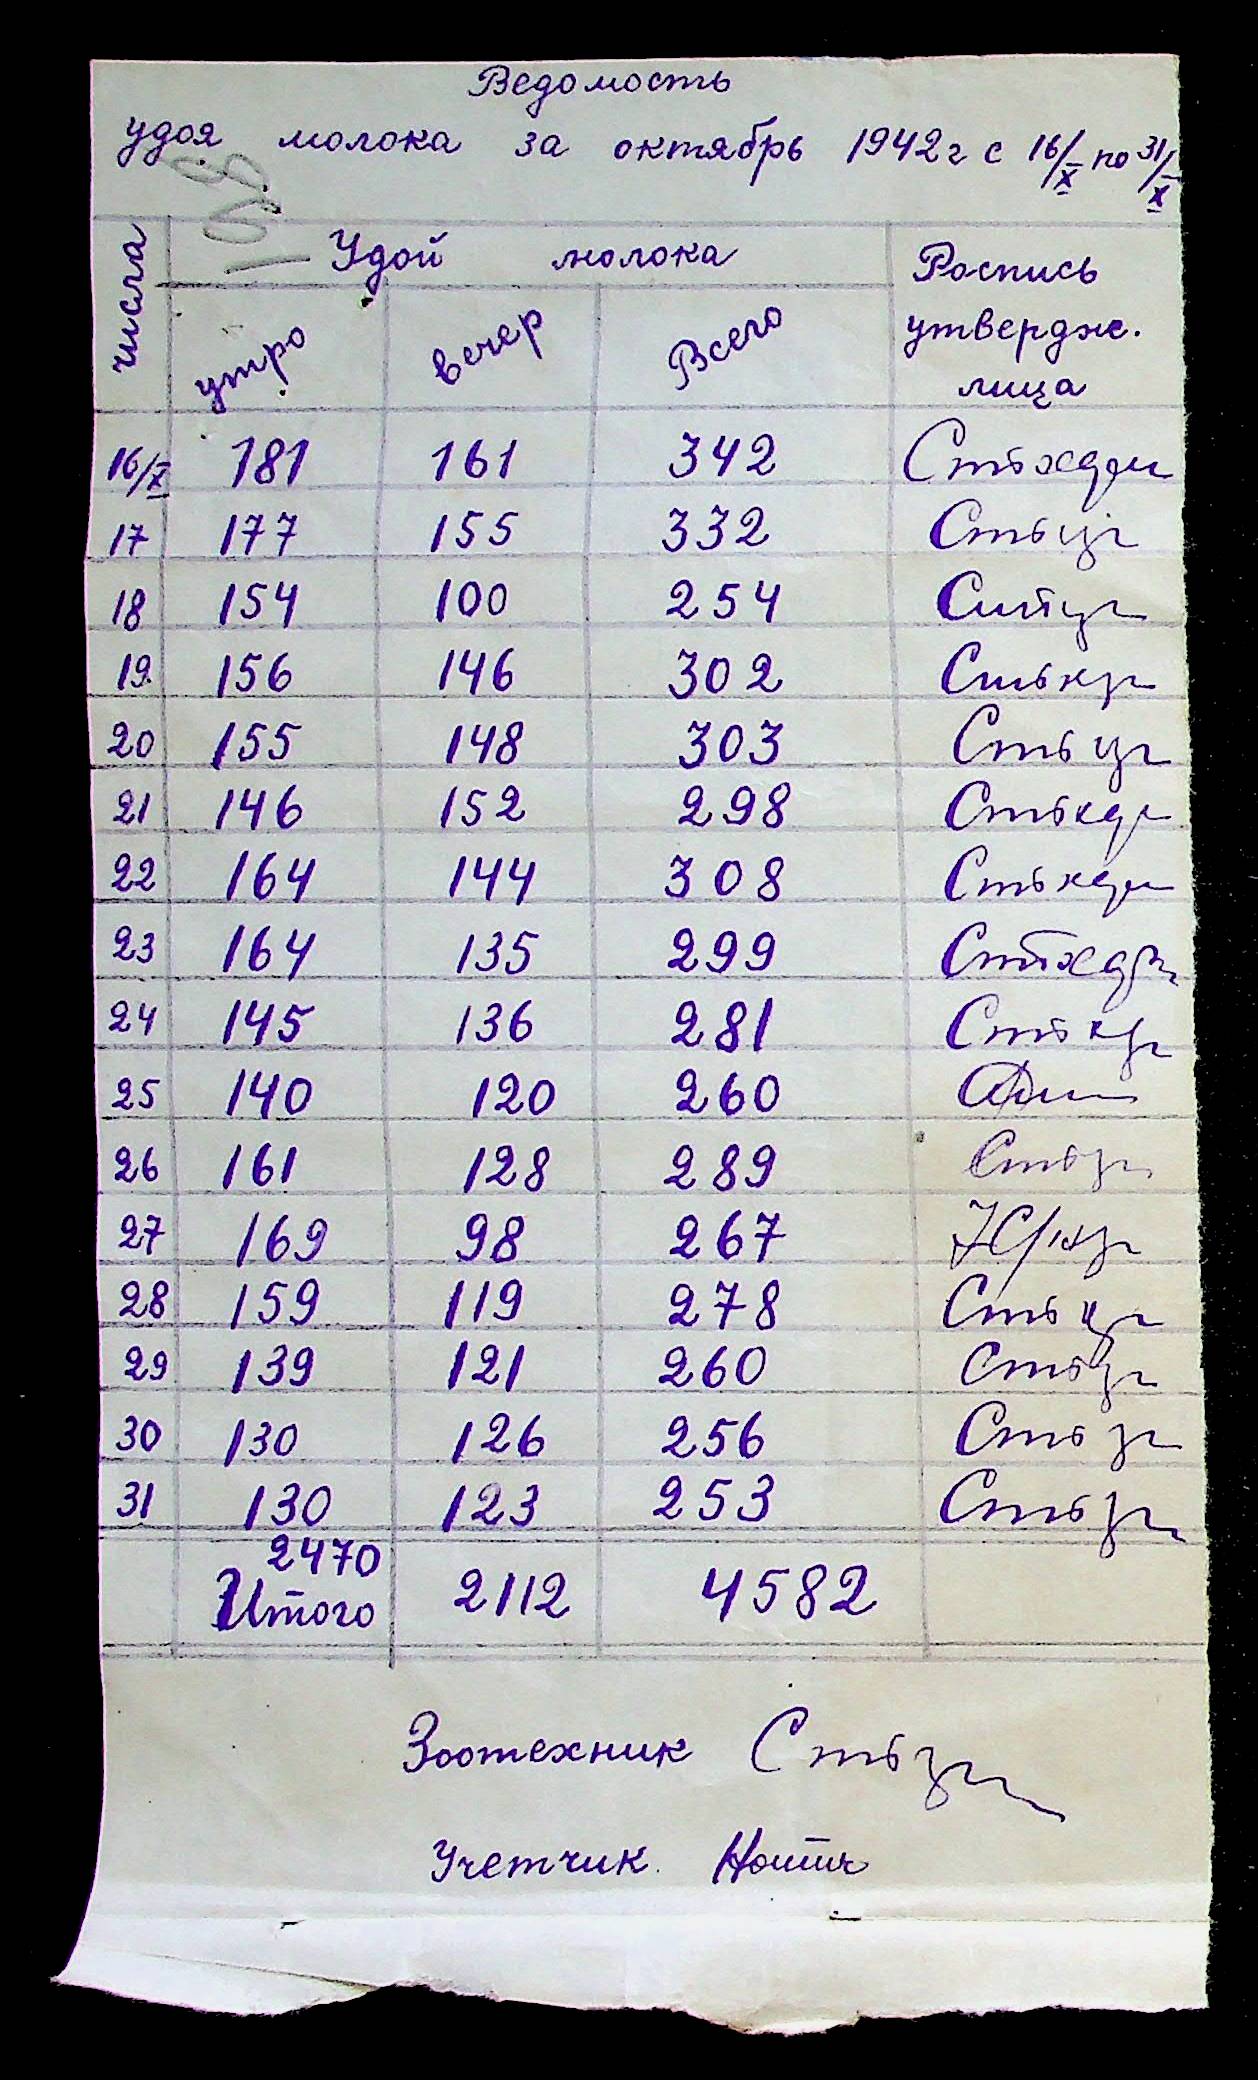 Ведомость
удоя молока за октябрь 1942 г с 16/X по 31/X
числа Удой молока Роспись утвердж. лица
утро вечер Всего
16/X 181 161 342
17 177 155 332
18 154 100 254
19 156 146 302
20 155 148 303
21 146 152 298
22 164 144 308
23 164 135 299
24 145 136 281
25 140 120 260
26 161 128 289
27 169 98 267
28 159 119 278
29 139 121 260
30 130 126 256
31 130 123 253
2470
Итого 2112 4582
Зоотехник
Учетчик